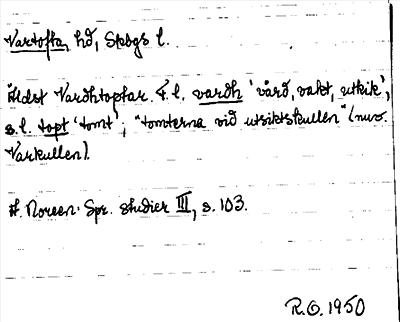 Vartofta hd, Skbgs l.
Äldst Vardhtoptar. F.l. vardh 'vård, vakt, utkik',
s.l. topt 'tomt'; "tomterna vid utsiktskullen" (nuv.
Varkullen).
A. Noreen: Spr. studier III, s. 103.
R.O. 1950